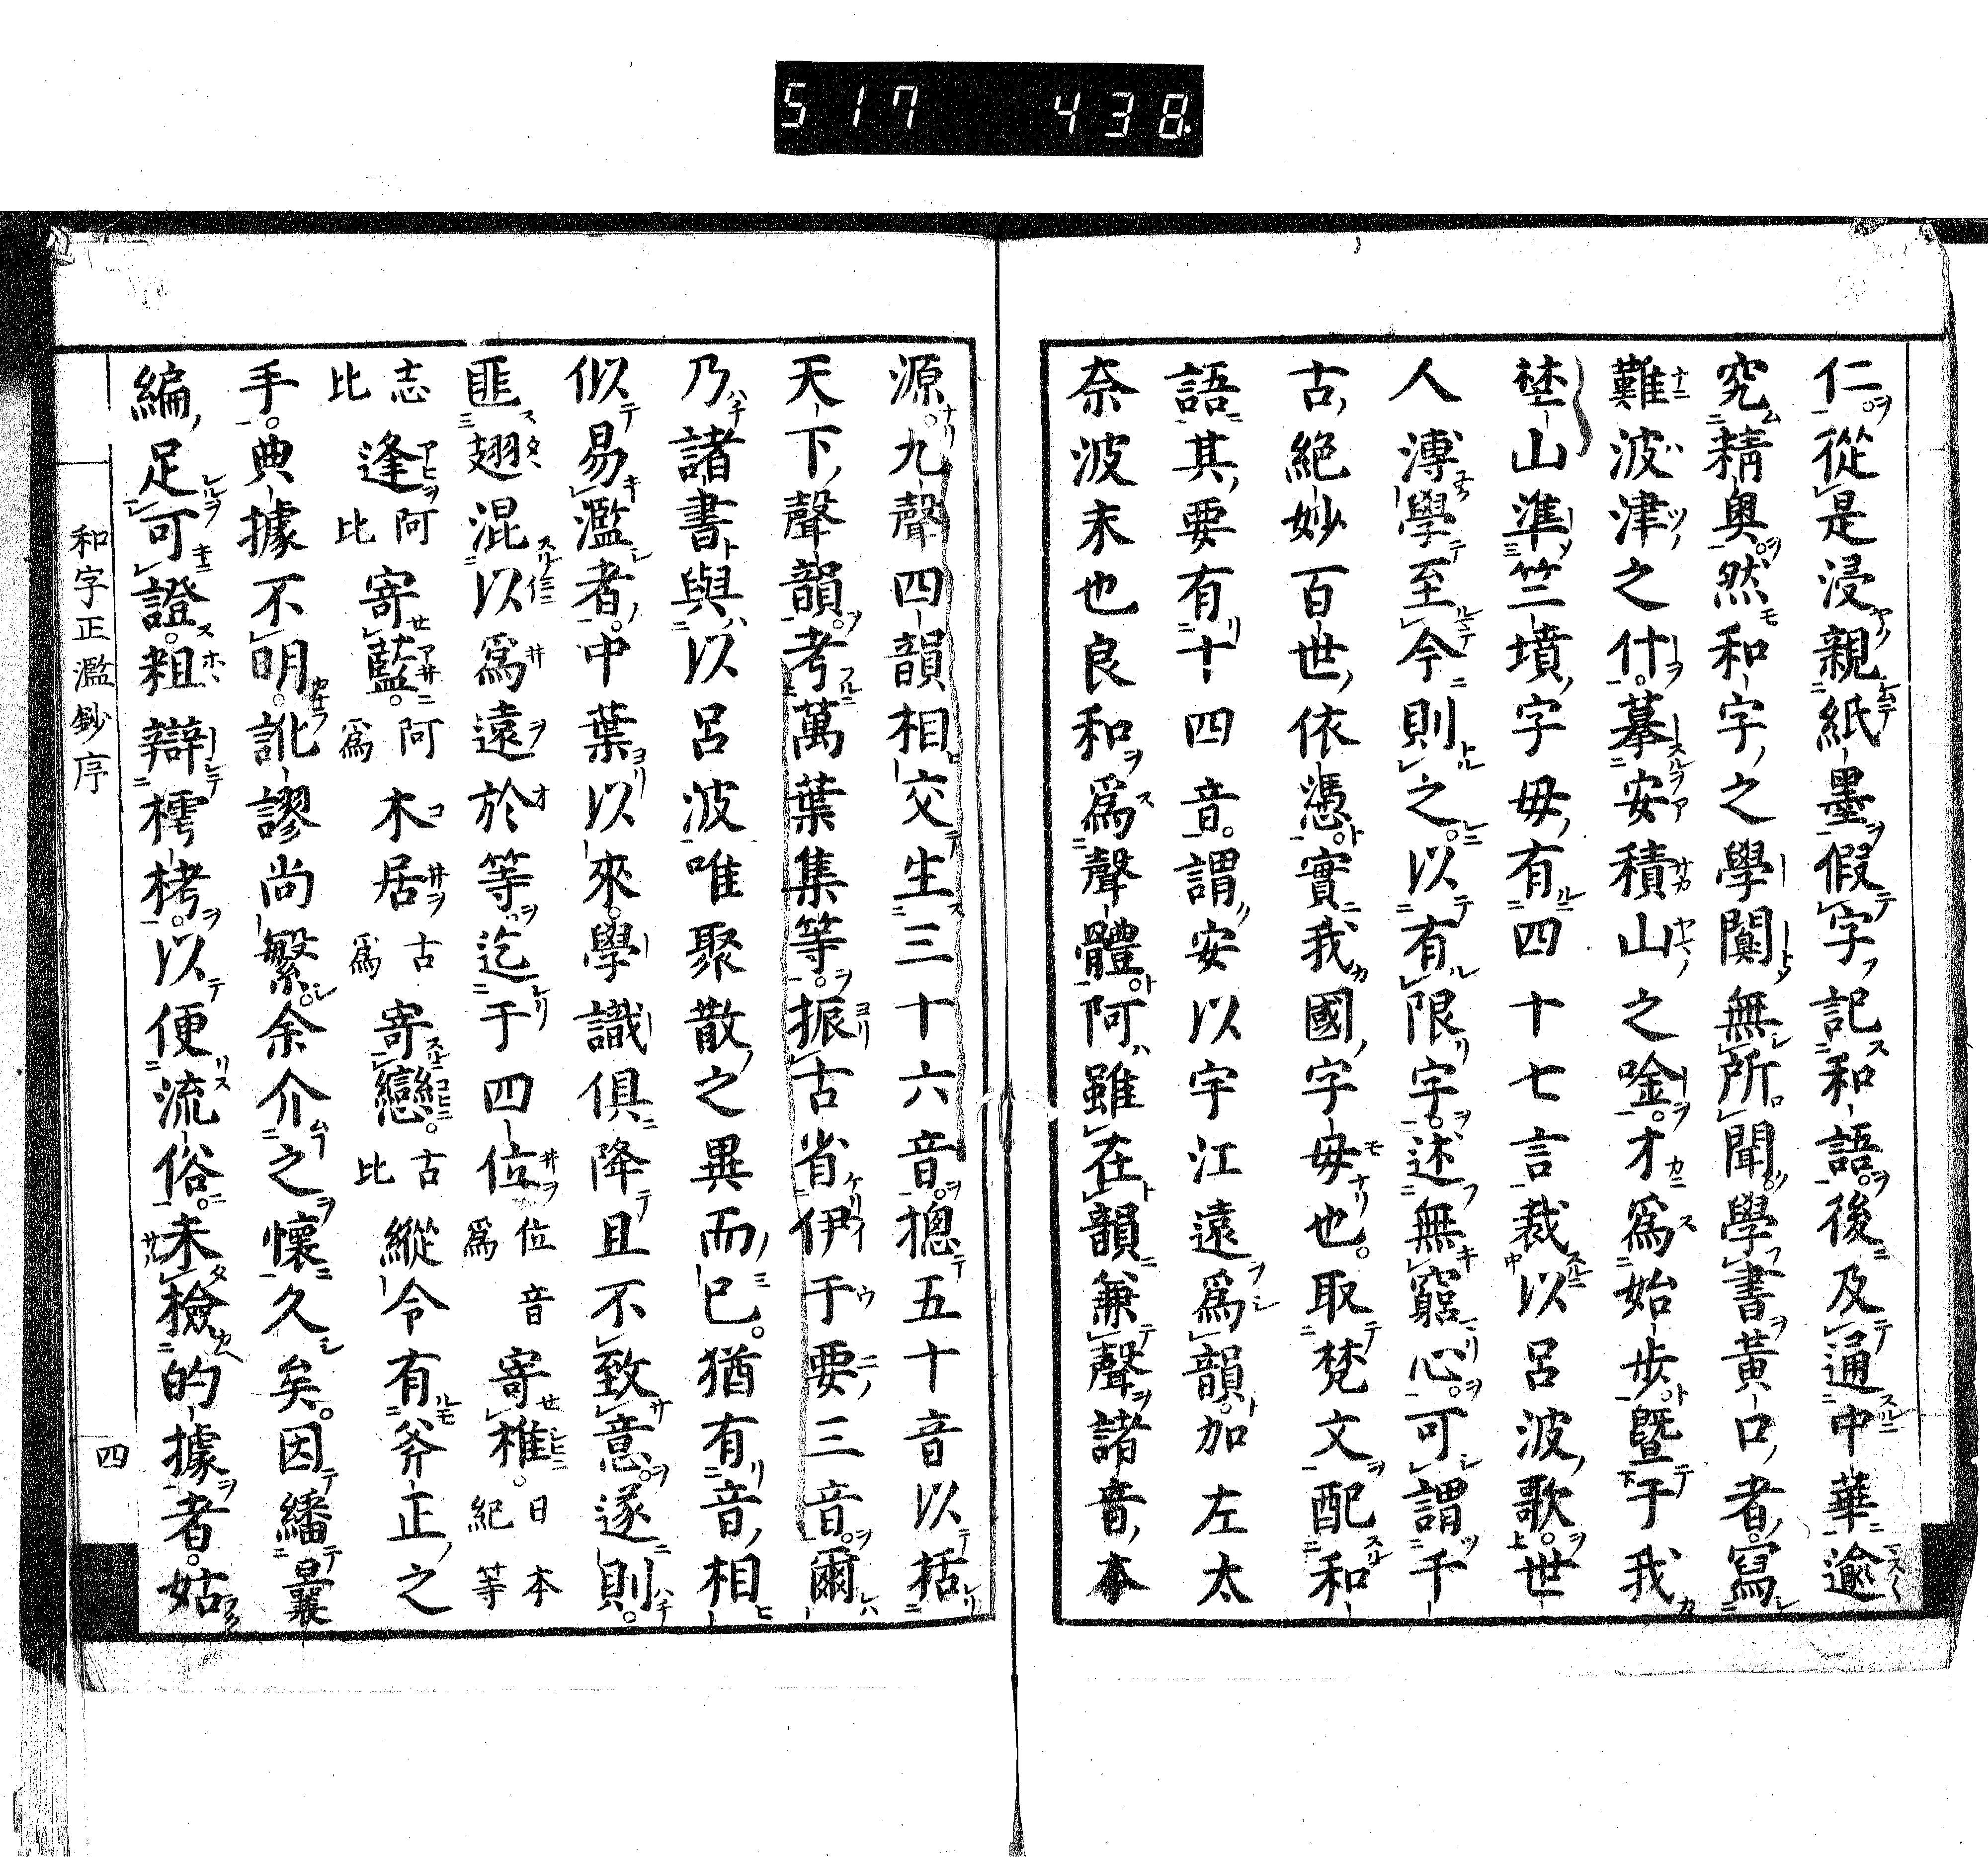 517 438
仁從是浸親紙墨假字記和語後及通中華逾
究精奧然和字之學闃無所聞學書黃口者寫
難波津之什摹安積山之唫才爲始步曁于我
埜山準竺墳字毋有四十七言裁以呂波歌世
人漙學至今則之以有限字述無窮心可謂千
古絕妙百世依憑實我國字毋也取梵文配和
語其要有十四音謂安以宇江遠爲韻加左太
奈波末也良和爲聲體阿雖在韻兼聲諸音本
源九聲四韻相交生三十六音摠五十音以括
天下聲韻考萬葉集等振古省伊于要三音爾
乃諸書與以呂波唯聚散之異而已猶有音相
似易濫者中葉以來學識俱降且不致意遂則
匪翅混以爲遠於等迄于四位位音爲寄椎日本紀等
志比逢阿比寄藍阿爲木居古爲寄戀古比縱令有斧正之
手典據不明訛謬尚繁余介之懷久矣因繙曩
編足可證粗辯樗栲以便流俗未檢的據者姑
和字正濫鈔序
四